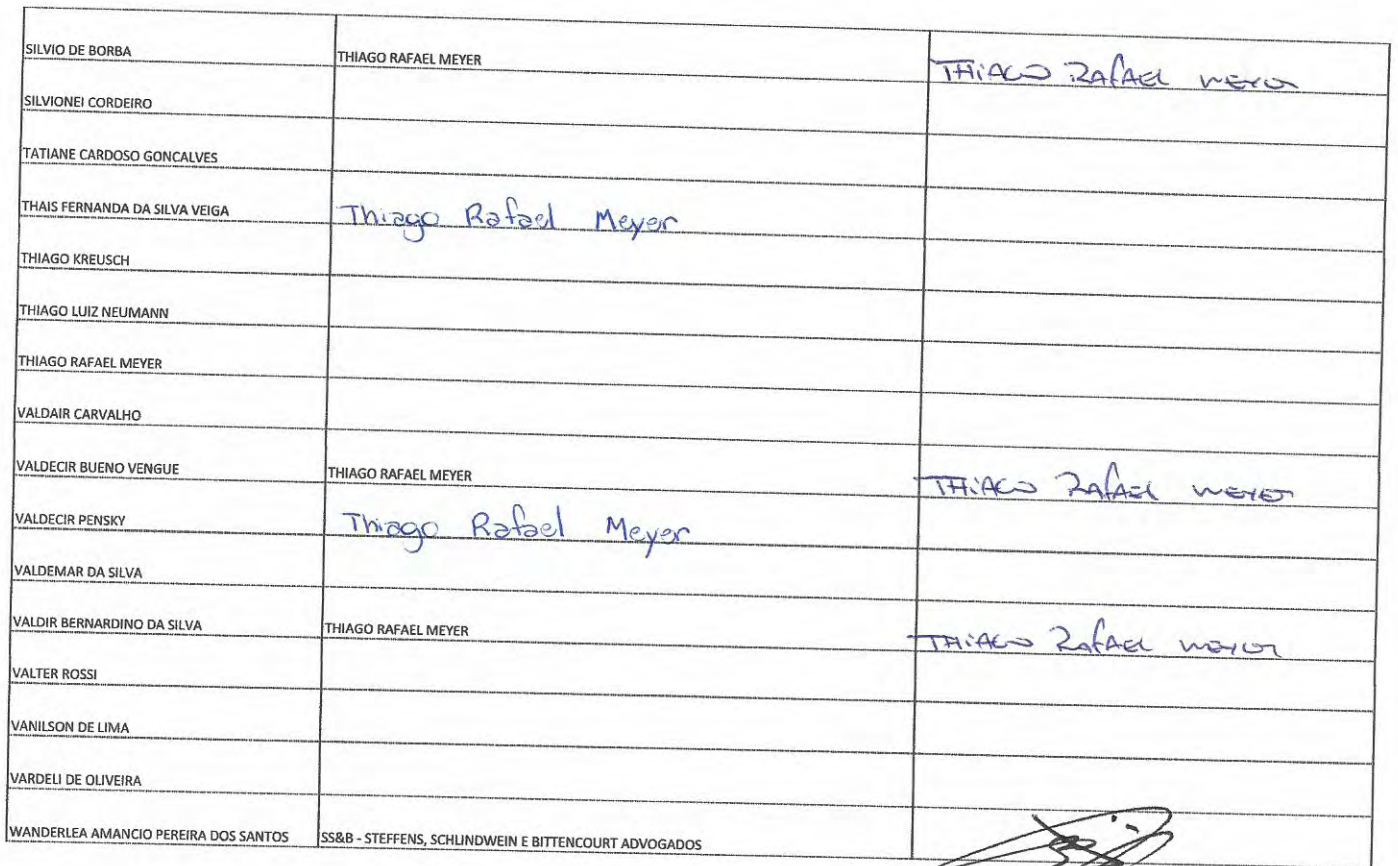 SILVIO DE BORBA THIAGO RAFAEL MEYER THIAGO RAFAEL MEYER
SILVIONEI CORDEIRO
TATIANE CARDOSO GONCALVES
THAIS FERNANDA DA SILVA VEIGA Thiago Rafael Meyer
THIAGO KREUSCH
THIAGO LUIZ NEUMANN
THIAGO RAFAEL MEYER
VALDAIR CARVALHO
VALDECIR BUENO VENGUE THIAGO RAFAEL MEYER THIAGO RAFAEL MEYER
VALDECIR PENSKY Thiago Rafael Meyer
VALDEMAR DA SILVA
VALDIR BERNARDINO DA SILVA THIAGO RAFAEL MEYER THIAGO RAFAEL MEYER
VALTER ROSSI
VANILSON DE LIMA
VARDELI DE OLIVEIRA
WANDERLEA AMANCIO PEREIRA DOS SANTOS SS&B - STEFFENS, SCHLINDWEIN E BITTENCOURT ADVOGADOS